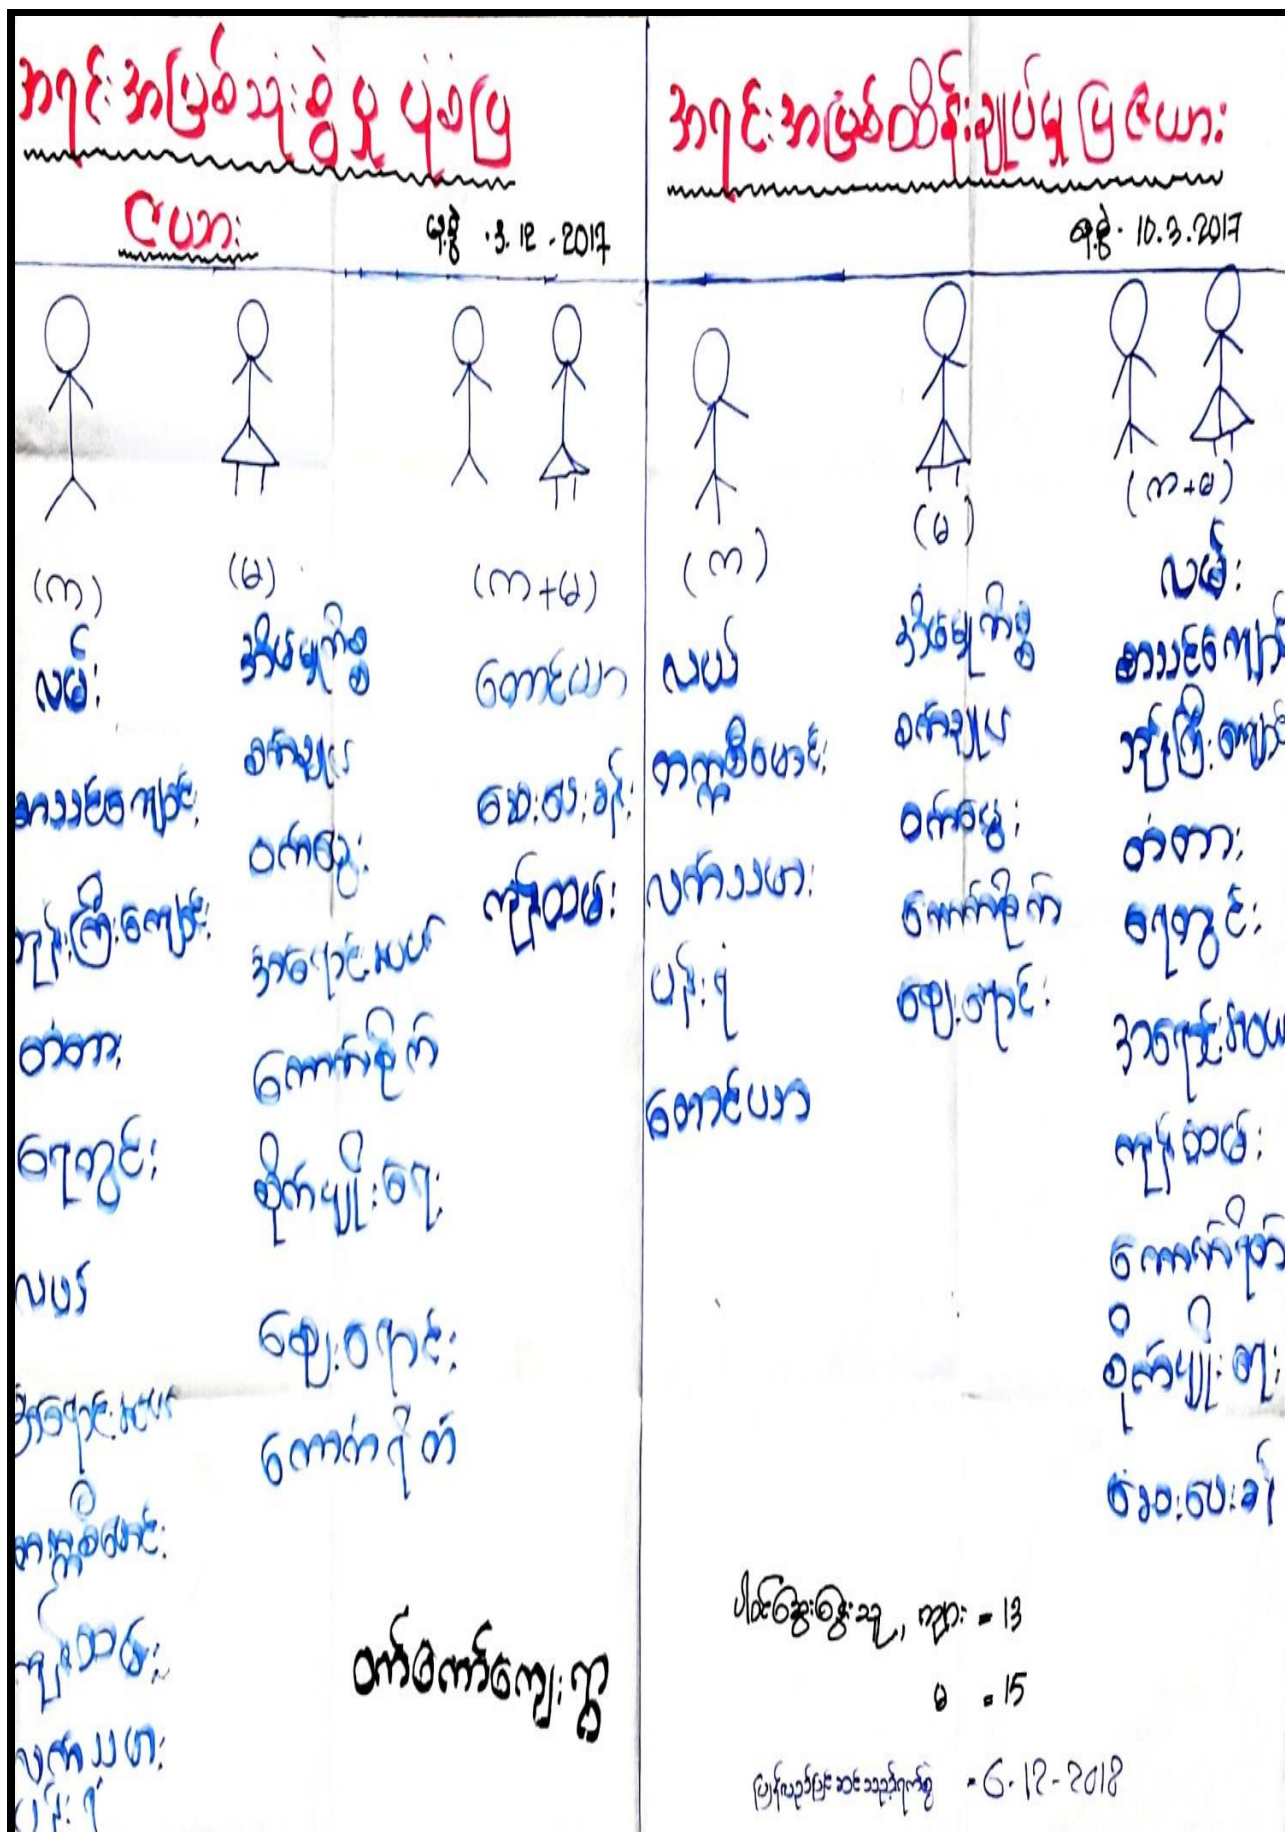 အရင်းအမြစ်သုံးစွဲမှု ပုံစံပြ
ဇယား
ရေ့စွဲ . 3. 12 . 2017
(က)
(မ)
(က+မ)
လမ်း
စာသင်ကျောင်း
ဘုန်းကြီးကျောင်း
တံတား
ရေတွင်း
လယ်
ကျွန်းထမ်း
လက်သမား
ပန်းရံ
အိမ်မှုကိစ္စ
စက်ချုပ်
ဝက်မွေး
ကောက်စိုက်
စိုက်ပျိုးရေး
ဈေးရောင်း
ကောက်ရိတ်
တောင်ယာ
ဆေးပေးခန်း
ဝက်ကော်ကျေးရွာ
အရင်းအမြစ်ထိန်းချုပ်မှု ပြ ဇယား
ရေ့စွဲ . 10.3.2017
(က)
(မ)
(က+မ)
လယ်
လက်သမား
ပန်းရံ
တောင်ယာ
အိမ်မှုကိစ္စ
စက်ချုပ်
ဝက်မွေး
ကောက်စိုက်
ဈေးရောင်း
လမ်း
စာသင်ကျောင်း
ဘုန်းကြီးကျောင်း
တံတား
ရေတွင်း
ကောက်ရိတ်
စိုက်ပျိုးရေး
ဆေးပေးခန်း
ပါဝင်ဆွေးနွေးသူ, ကျား = 13
မ = 15
ပြန်လည်ပြင်ဆင်သည့်ရက်စွဲ = 6-12-2018